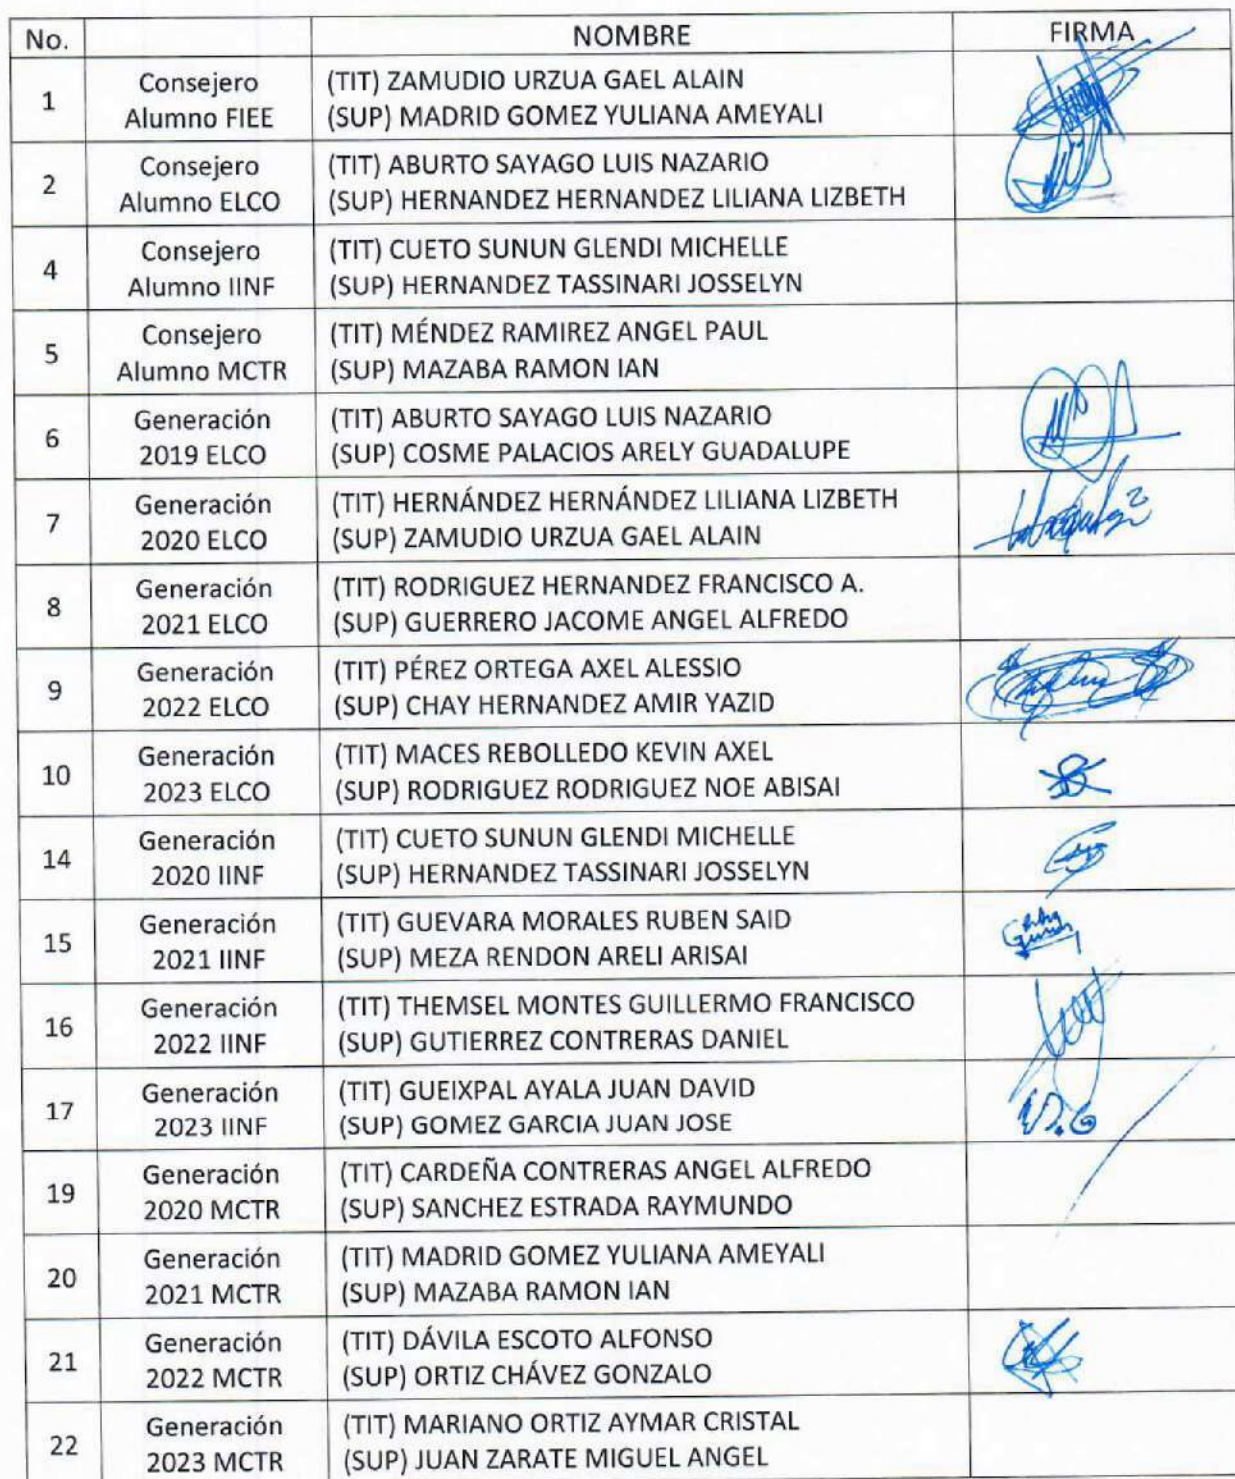 No. NOMBRE FIRMA
1 Consejero Alumno FIEE (TIT) ZAMUDIO URZUA GAEL ALAIN
(SUP) MADRID GOMEZ YULIANA AMEYALI
2 Consejero Alumno ELCO (TIT) ABURTO SAYAGO LUIS NAZARIO
(SUP) HERNANDEZ HERNANDEZ LILIANA LIZBETH
4 Consejero Alumno IINF (TIT) CUETO SUNUN GLENDI MICHELLE
(SUP) HERNANDEZ TASSINARI JOSSELYN
5 Consejero Alumno MCTR (TIT) MÉNDEZ RAMIREZ ANGEL PAUL
(SUP) MAZABA RAMON IAN
6 Generación 2019 ELCO (TIT) ABURTO SAYAGO LUIS NAZARIO
(SUP) COSME PALACIOS ARELY GUADALUPE
7 Generación 2020 ELCO (TIT) HERNÁNDEZ HERNÁNDEZ LILIANA LIZBETH
(SUP) ZAMUDIO URZUA GAEL ALAIN
8 Generación 2021 ELCO (TIT) RODRIGUEZ HERNANDEZ FRANCISCO A.
(SUP) GUERRERO JACOME ANGEL ALFREDO
9 Generación 2022 ELCO (TIT) PÉREZ ORTEGA AXEL ALESSIO
(SUP) CHAY HERNANDEZ AMIR YAZID
10 Generación 2023 ELCO (TIT) MACES REBOLLEDO KEVIN AXEL
(SUP) RODRIGUEZ RODRIGUEZ NOE ABISAI
14 Generación 2020 IINF (TIT) CUETO SUNUN GLENDI MICHELLE
(SUP) HERNANDEZ TASSINARI JOSSELYN
15 Generación 2021 IINF (TIT) GUEVARA MORALES RUBEN SAID
(SUP) MEZA RENDON ARELI ARISAI
16 Generación 2022 IINF (TIT) THEMSEL MONTES GUILLERMO FRANCISCO
(SUP) GUTIERREZ CONTRERAS DANIEL
17 Generación 2023 IINF (TIT) GUEIXPAL AYALA JUAN DAVID
(SUP) GOMEZ GARCIA JUAN JOSE
19 Generación 2020 MCTR (TIT) CARDEÑA CONTRERAS ANGEL ALFREDO
(SUP) SANCHEZ ESTRADA RAYMUNDO
20 Generación 2021 MCTR (TIT) MADRID GOMEZ YULIANA AMEYALI
(SUP) MAZABA RAMON IAN
21 Generación 2022 MCTR (TIT) DÁVILA ESCOTO ALFONSO
(SUP) ORTIZ CHÁVEZ GONZALO
22 Generación 2023 MCTR (TIT) MARIANO ORTIZ AYMAR CRISTAL
(SUP) JUAN ZARATE MIGUEL ANGEL